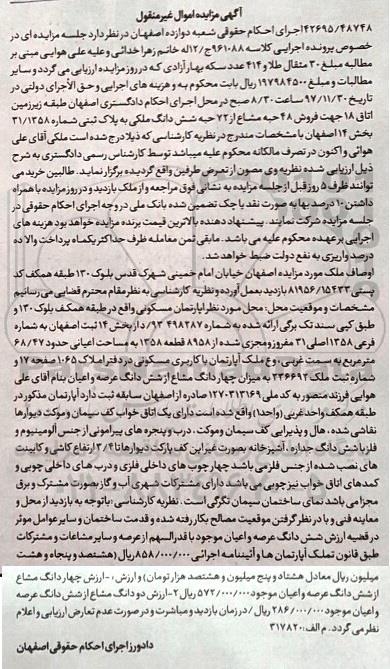 آگهی مزایده اموال غیرمنقول
۴۲۶۹۵/۴۸۷۴۸ اجرای احکام حقوقی شعبه دوازده اصفهان در نظر دارد جلسه مزایده ای در
خصوص پرونده اجرایی کلاسه ۹۶۱۰۸۸ج/۱۲ له خانم زهرا خدائی و علیه علی هوایی مبنی بر
مطالبه مبلغ ۳۰ مثقال طلا و ۴۱۴ عدد سکه بهار آزادی که در روز مزایده ارزیابی می گردد و سایر
مطالبات و مبلغ ۱۹۷۹۸۴۵۰۰ ریال بابت محکوم به و هزینه های اجرایی و حق الاجرای دولتی در
تاریخ ۹۷/۱۱/۳۰ ساعت ۸/۳۰ صبح در محل اجرای احکام دادگستری اصفهان طبقه زیرزمین
اتاق ۱۸ جهت فروش ۴۸ حبه مشاع از ۷۲ حبه شش دانگ ملکی به پلاک ثبتی شماره ۳۱/۱۳۵۸
بخش ۱۴ اصفهان با مشخصات مندرج در نظریه کارشناسی که ذیلا درج شده است ملکی آقای علی
هوائی و اکنون در تصرف مالکانه محکوم علیه میباشد توسط کارشناس رسمی دادگستری به شرح
ذیل ارزیابی شده نظریه وی مصون از تعرض طرفین واقع گردیده برگزار نماید. طالبین خرید می
توانند ظرف ۵ روز قبل از جلسه مزایده به نشانی فوق مراجعه و از ملک بازدید و در روز مزایده با همراه
داشتن ۱۰ درصد بها به صورت نقد یا چک تضمین شده بانک ملی در وجه اجرای احکام حقوقی در
جلسه مزایده شرکت نمایند. پیشنهاد دهنده بالاترین قیمت برنده مزایده خواهد بود هزینه های
اجرایی بر عهده محکوم علیه می باشد. مابقی ثمن معامله ظرف حداکثر یکماه پرداخت والا ده
درصد واریزی به نفع دولت ضبط خواهد شد.
اوصاف ملک مورد مزایده اصفهان خیابان امام خمینی شهرک قدس بلوک ۱۳۰ طبقه همکف کد
پستی ۸۱۹۵۶/۱۵۴۳۳ بازدید بعمل آورده و نظریه کارشناسی به نظر مقام محترم قضایی می رسانیم
مشخصات و موقعیت محل: محل مورد نظر آپارتمان مسکونی واقع در طبقه همکف بلوک ۱۳۰ و
طبق کپی سند تک برگی ارائه شده به شماره ۴۹۸۲۸۷ ۹۳/د از بخش ۱۴ ثبت اصفهان به شماره
فرعی ۱۳۵۸ اصلی ۳۱ مفروز و مجزی شده از ۸۹۵۸ قطعه ۱۳۵۸ به مساحت اعیانی حدود ۶۸/۴۷
مترمربع به سمت غربی، نوع ملک آپارتمان با کاربری مسکونی در دفتر املاک ۱۰۶۵ صفحه ۱۷ و
شماره ثبت ملک ۲۳۶۶۹۳ به میزان چهار دانگ مشاع از شش دانگ عرصه و اعیان بنام آقای علی
هوایی فرزند منصور به کد ملی ۱۲۷۰۳۱۳۱۶۹ صادره از اصفهان سابقه ثبت دارد آپارتمان مذکور در
طبقه همکف واحد غربی (واحد۱) واقع شده است دارای یک اتاق خواب کف سیمان و موکت دیوارها
نقاشی شده، هال و پذیرایی کف سیمان و موکت، درب و پنجره های پیرامونی از جنس آلومینیوم و
فلز باشش دانگ جداره، آشپزخانه بصورت غیر اپن کف پارکت دیوارها تا ۳/۴ ارتفاع کاشی و کابینت
های نصب شده از جنس فلز می باشد چهارچوب های داخلی فلزی و درب های داخلی چوبی و
کمدهای اتاق خواب نیز چوبی می باشد دارای مشترکات شهری آب و گاز بصورت مشترک و برق
مجزا می باشد نمای ساختمان سیمان تگرگی است. نظریه کارشناسی: باتوجه به بازدید از محل و
معاینه فنی و با در نظر گرفتن موقعیت مصالح بکار رفته شده و قدمت ساختمان و سایر عوامل موثر
در قضیه ارزش شش دانگ عرصه و اعیان موجود با قدرالسهم از عرصه و سایر مشاعات و مشترکات
طبق قانون تملک آپارتمان ها و آئیننامه اجرائی ۸۵۸/۰۰۰/۰۰۰ ریال (هشتصد و پنجاه و هشت
میلیون ریال معادل هشتاد و پنج میلیون و هشتصد هزار تومان) و ارزش ۱- ارزش چهار دانگ مشاع
از شش دانگ عرصه و اعیان موجود ۵۷۲/۰۰۰/۰۰۰ ریال ۲- ارزش دو دانگ مشاع از شش دانگ عرصه
و اعیان موجود ۲۸۶/۰۰۰/۰۰۰ ریال / در زمان بازدید و مباشرت و در صورت عدم تعارض ارزیابی و اعلام
نظر می گردد. م الف: ۳۱۷۸۲۰
دادورز اجرای احکام حقوقی اصفهان